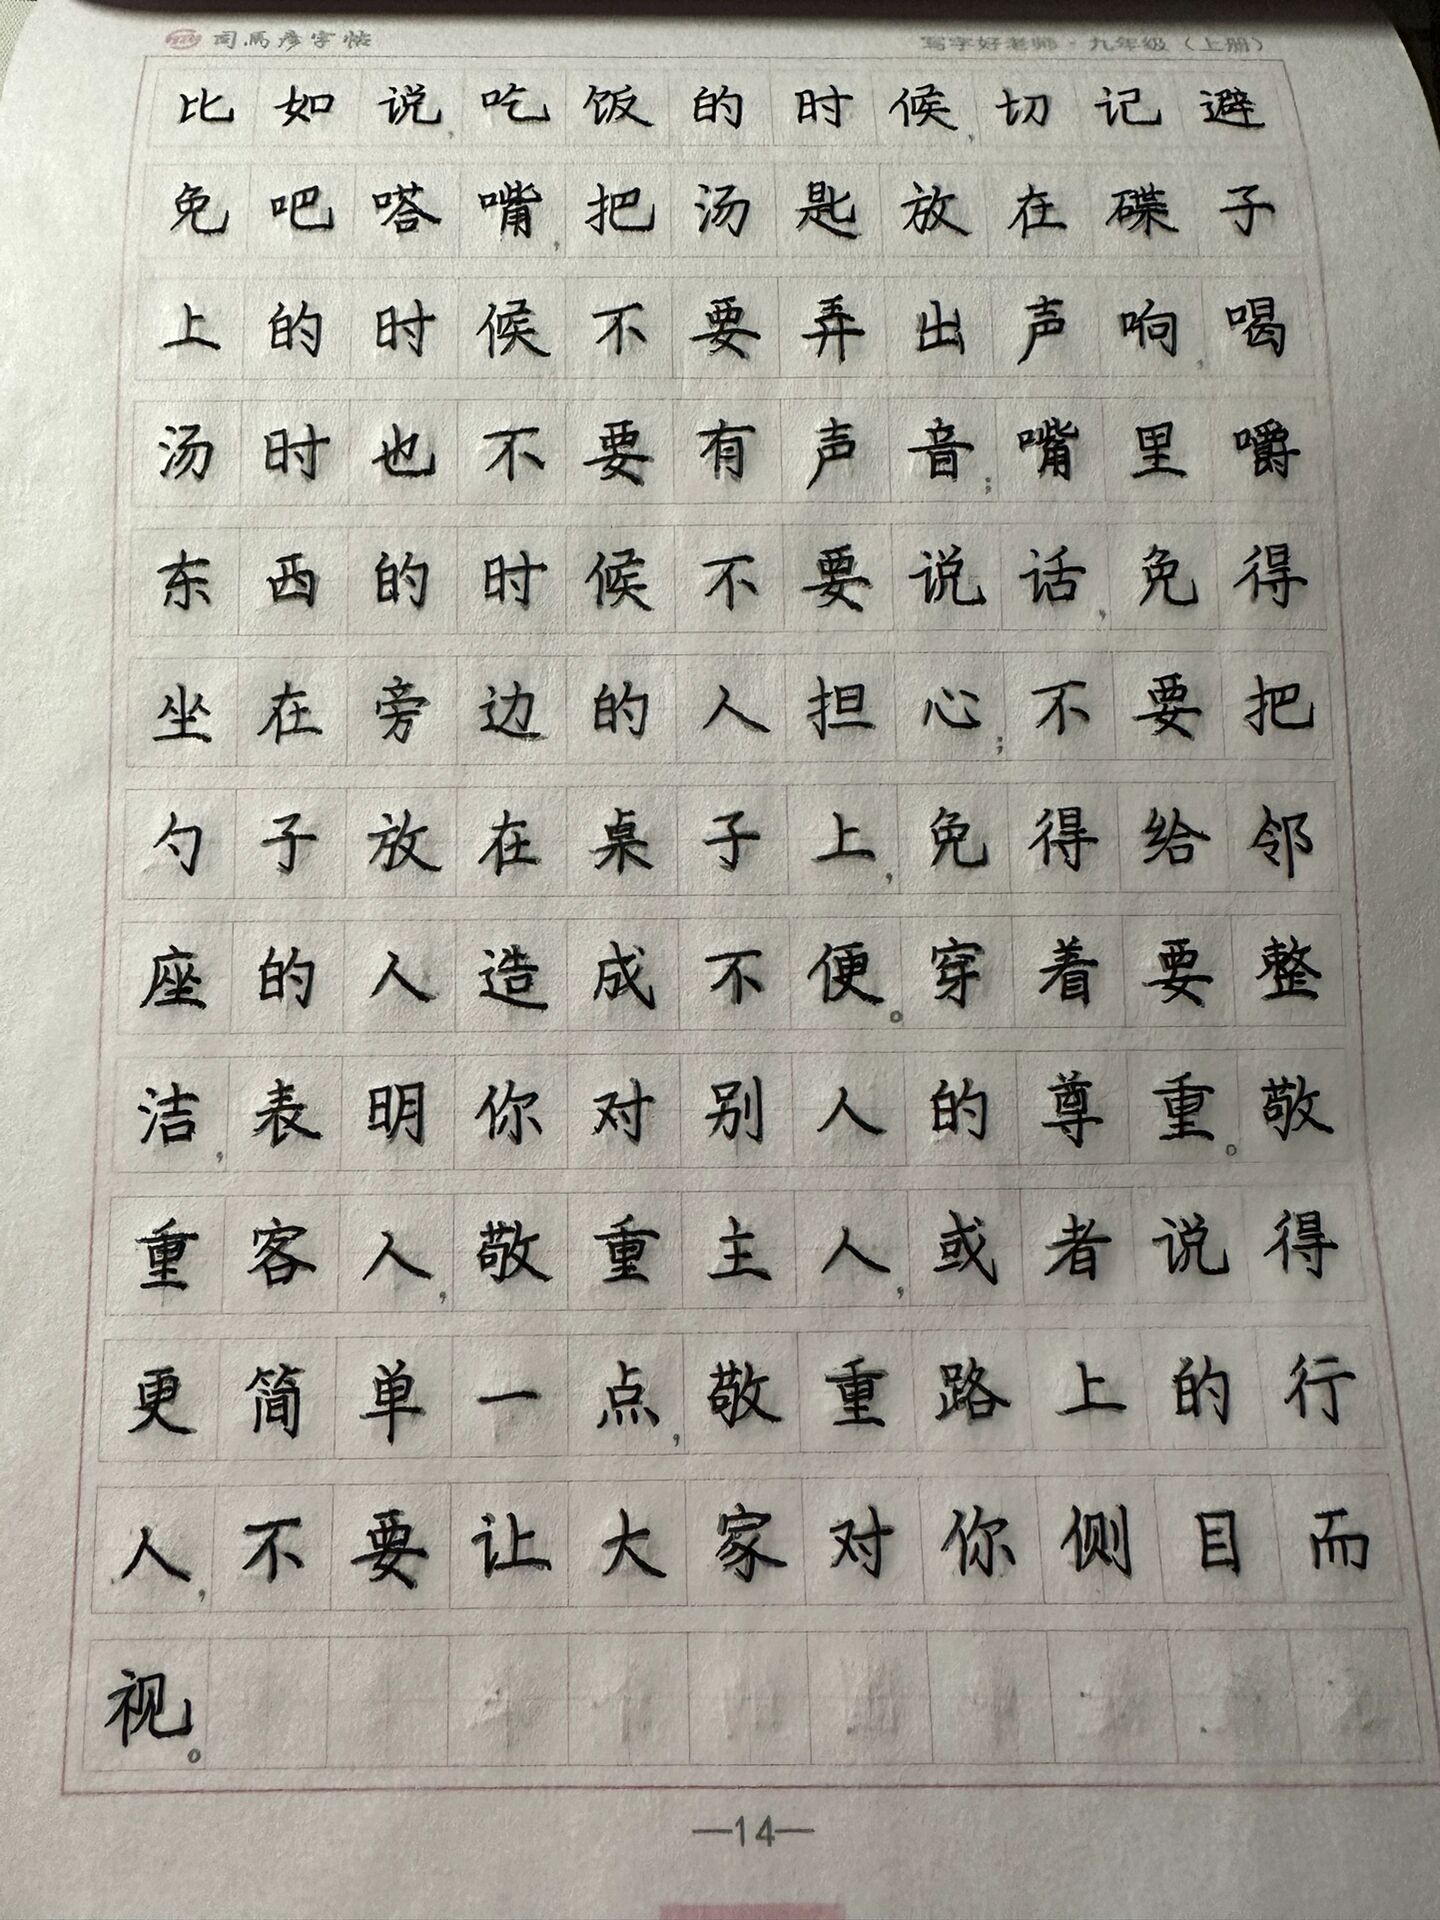 司马彦字帖 写字好老师·九年级（上册）
比如说,吃饭的时候,切记避
免吧嗒嘴,把汤匙放在碟子
上的时候不要弄出声响,喝
汤时也不要有声音;嘴里嚼
东西的时候不要说话,免得
坐在旁边的人担心;不要把
勺子放在桌子上,免得给邻
座的人造成不便。穿着要整
洁,表明你对别人的尊重。敬
重客人,敬重主人,或者说得
更简单一点,敬重路上的行
人,不要让大家对你侧目而
视。
—14—